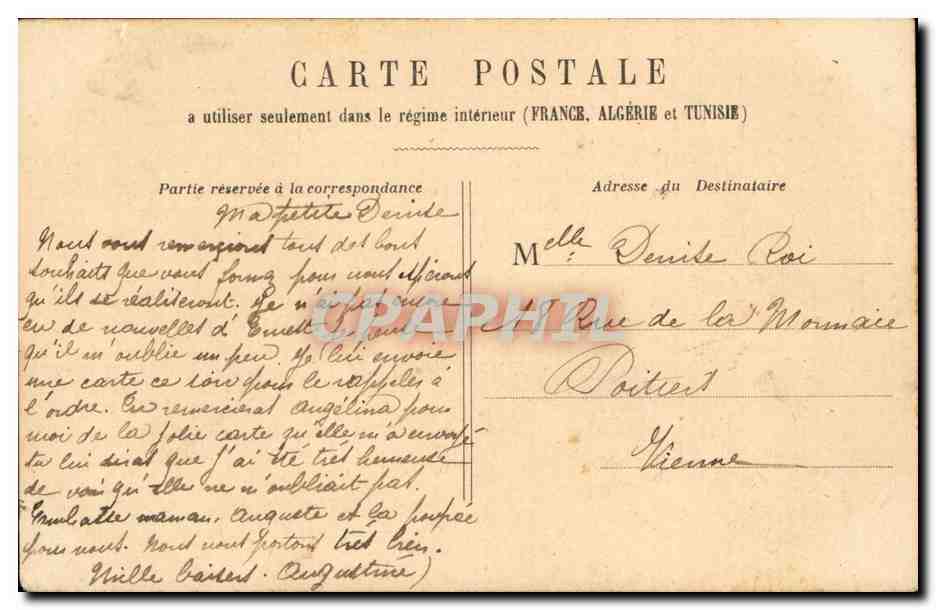 CARTE POSTALE
a utiliser seulement dans le régime intérieur (FRANCE, ALGÉRIE et TUNISIE)
Partie réservée à la correspondance
Ma petite Denise
Nous vous remercions tous des bons
souhaits que vous formez pour nous espérons
qu'ils se réaliseront. Je n'ai pas encore
eu de nouvelles d'Ernest
qu'il m'oublie un peu. Je lui envoie
une carte ce soir pour le rappeler à
l'ordre. Tu remercieras Angélina pour
moi de la jolie carte qu'elle m'a envoyé
tu lui diras que j'ai été très heureuse
de voir qu'elle ne m'oubliait pas.
Embrasse maman, Auguste et la poupée
pour nous. Nous nous portons très bien.
Mille baisers. Augustine
Adresse du Destinataire
Melle: Denise Roi
Rue de la Monnaie
Poitiers
Vienne
CPAPHIL